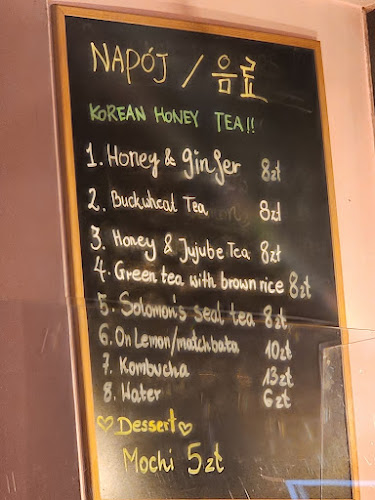 NAPÓJ / 음료
KOREAN HONEY TEA!!
1. Honey & ginger 8zł
2. Buckwheat Tea 8zł
3. Honey & Jujube Tea 8zł
4. Green tea with brown rice 8zł
5. Solomon's seal tea 8zł
6. On Lemon/matchbata 10zł
7. Kombucha 13zł
8. Water 6zł
♡Dessert♡
Mochi 5zł